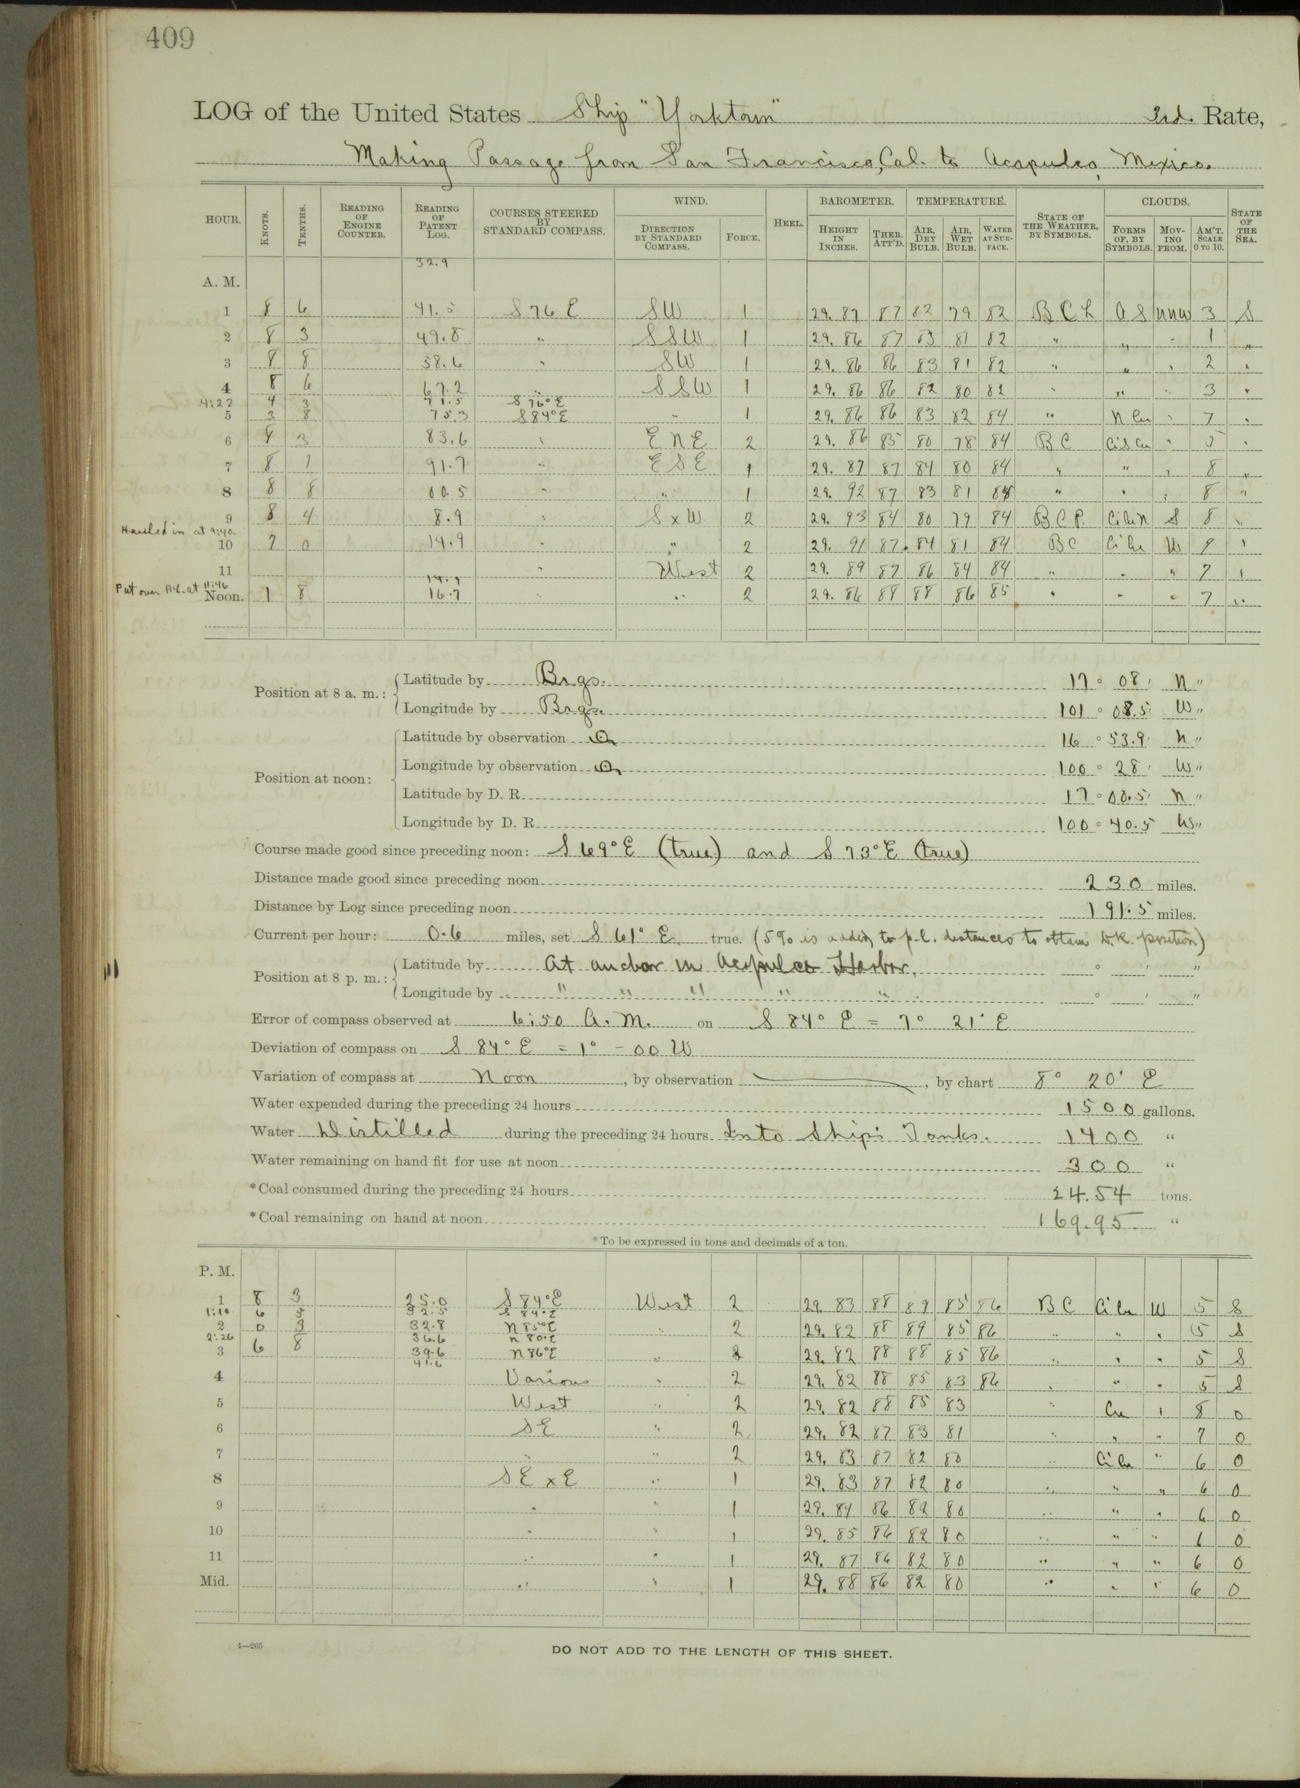 409
LOG of the United States Ship "Yorktown" 3rd. Rate,
Making Passage from San Francisco, Cal. to Acapulco, Mexico.
HOUR. KNOTS. TENTHS. READING OF ENGINE COUNTER. READING OF PATENT LOG. COURSES STEERED BY STANDARD COMPASS. WIND. DIRECTION BY STANDARD COMPASS. FORCE. HEEL. BAROMETER. HEIGHT IN INCHES. THER. ATT'D. TEMPERATURE. AIR, DRY BULB. AIR, WET BULB. WATER AT SURFACE. STATE OF THE WEATHER, BY SYMBOLS. CLOUDS. FORMS OF, BY SYMBOLS. MOVING FROM. AM'T. SCALE 0 TO 10. STATE OF THE SEA.
32.9
A. M.
1 8 6 41.5 S 76 E SW 1 29.87 87 82 79 82 B C L A S NNW 3 S
2 8 3 49.8 " SSW 1 29.86 87 83 81 82 " " " 1 "
3 8 8 58.6 SW 1 29.86 86 83 81 82 " " " 2 "
4 8 6 67.2 " SSW 1 29.86 86 82 80 82 " " " 3 "
4:22 4 3 71.5 S 76° E
5 3 8 75.3 S 84° E " 1 29.86 86 83 82 84 " N Cu " 7 "
6 8 3 83.6 " E N E 2 29.86 85 80 78 84 B C Ci S Cu " 5 "
7 8 1 91.7 " E S E 1 29.87 87 84 80 84 " " " 8 "
8 8 8 00.5 " " 1 29.92 87 83 81 84 " " " 8 "
9 8 4 8.9 " S x W 2 29.93 84 80 79 84 B C P. Ci Cu N S 8 "
Hauled in at 9:40.
10 7 0 14.9 " " 2 29.91 87 84 81 84 B C Ci Cu W 9 "
11 " West 2 29.89 87 86 84 84 " " " 7 "
14.9
Put over P.L. at 11:46
Noon. 1 8 16.7 " " 2 29.86 88 88 86 85 " " " 7 "
Position at 8 a. m.: Latitude by Brgs. 17° 08' N "
Longitude by Brgs. 101° 08.5' W "
Position at noon: Latitude by observation 16° 53.9' N "
Longitude by observation 100° 28' W "
Latitude by D. R. 17° 00.5' N "
Longitude by D. R. 100° 40.5 W "
Course made good since preceding noon: S 69° E (true) and S 73° E (true)
Distance made good since preceding noon 230 miles.
Distance by Log since preceding noon 191.5 miles.
Current per hour: 0.6 miles, set S 61° E. true. (5% is added to p.l. distances to obtain D.R. position)
Position at 8 p. m.: Latitude by At anchor in Acapulco Harbor. ° ' "
Longitude by " " " " " ° ' "
Error of compass observed at 6:50 A. M. on S 84° E = 7° 21' E
Deviation of compass on S 84° E = 1° - 00 W
Variation of compass at Noon, by observation , by chart 8° 20' E
Water expended during the preceding 24 hours 1500 gallons.
Water Distilled during the preceding 24 hours Into Ship's Tanks. 1400 "
Water remaining on hand fit for use at noon 300 "
*Coal consumed during the preceding 24 hours 24.54 tons.
*Coal remaining on hand at noon 169.95 "
*To be expressed in tons and decimals of a ton.
P. M.
1 8 3 25.0 S 84° E West 2 29.83 88 89 85 86 B C Ci Cu W 5 S
1:10 6 5 32.5 S 84° E
2 0 3 32.8 N 85° E " 2 29.82 88 89 85 86 " " " 5 S
2:26 36.6 N 80° E
3 6 8 39.6 N 86° E " 2 29.82 88 88 85 86 " " " 5 S
41.6
4 Various " 2 29.82 88 85 83 86 " " " 5 S
5 West " 2 29.82 88 85 83 " Cu " 8 0
6 SE " 2 29.82 87 83 81 " " " 7 0
7 " " 2 29.83 87 82 80 " Ci Cu " 6 0
8 SE x E " 1 29.83 87 82 80 " " " 6 0
9 " " 1 29.84 86 82 80 " " " 6 0
10 " " 1 29.85 86 82 80 " " " 6 0
11 " " 1 29.87 86 82 80 " " " 6 0
Mid. " " 1 29.88 86 82 80 " " " 6 0
4—265
DO NOT ADD TO THE LENGTH OF THIS SHEET.